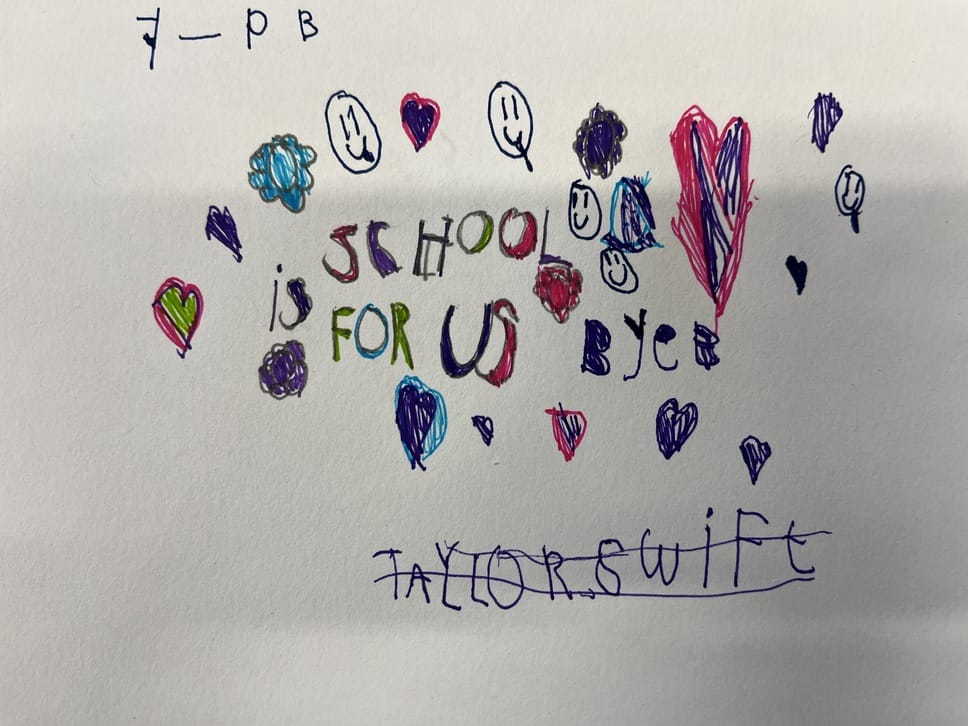 7_PB
SCHOOL
is
FOR US BYEB
TAYLOR.SWiFt